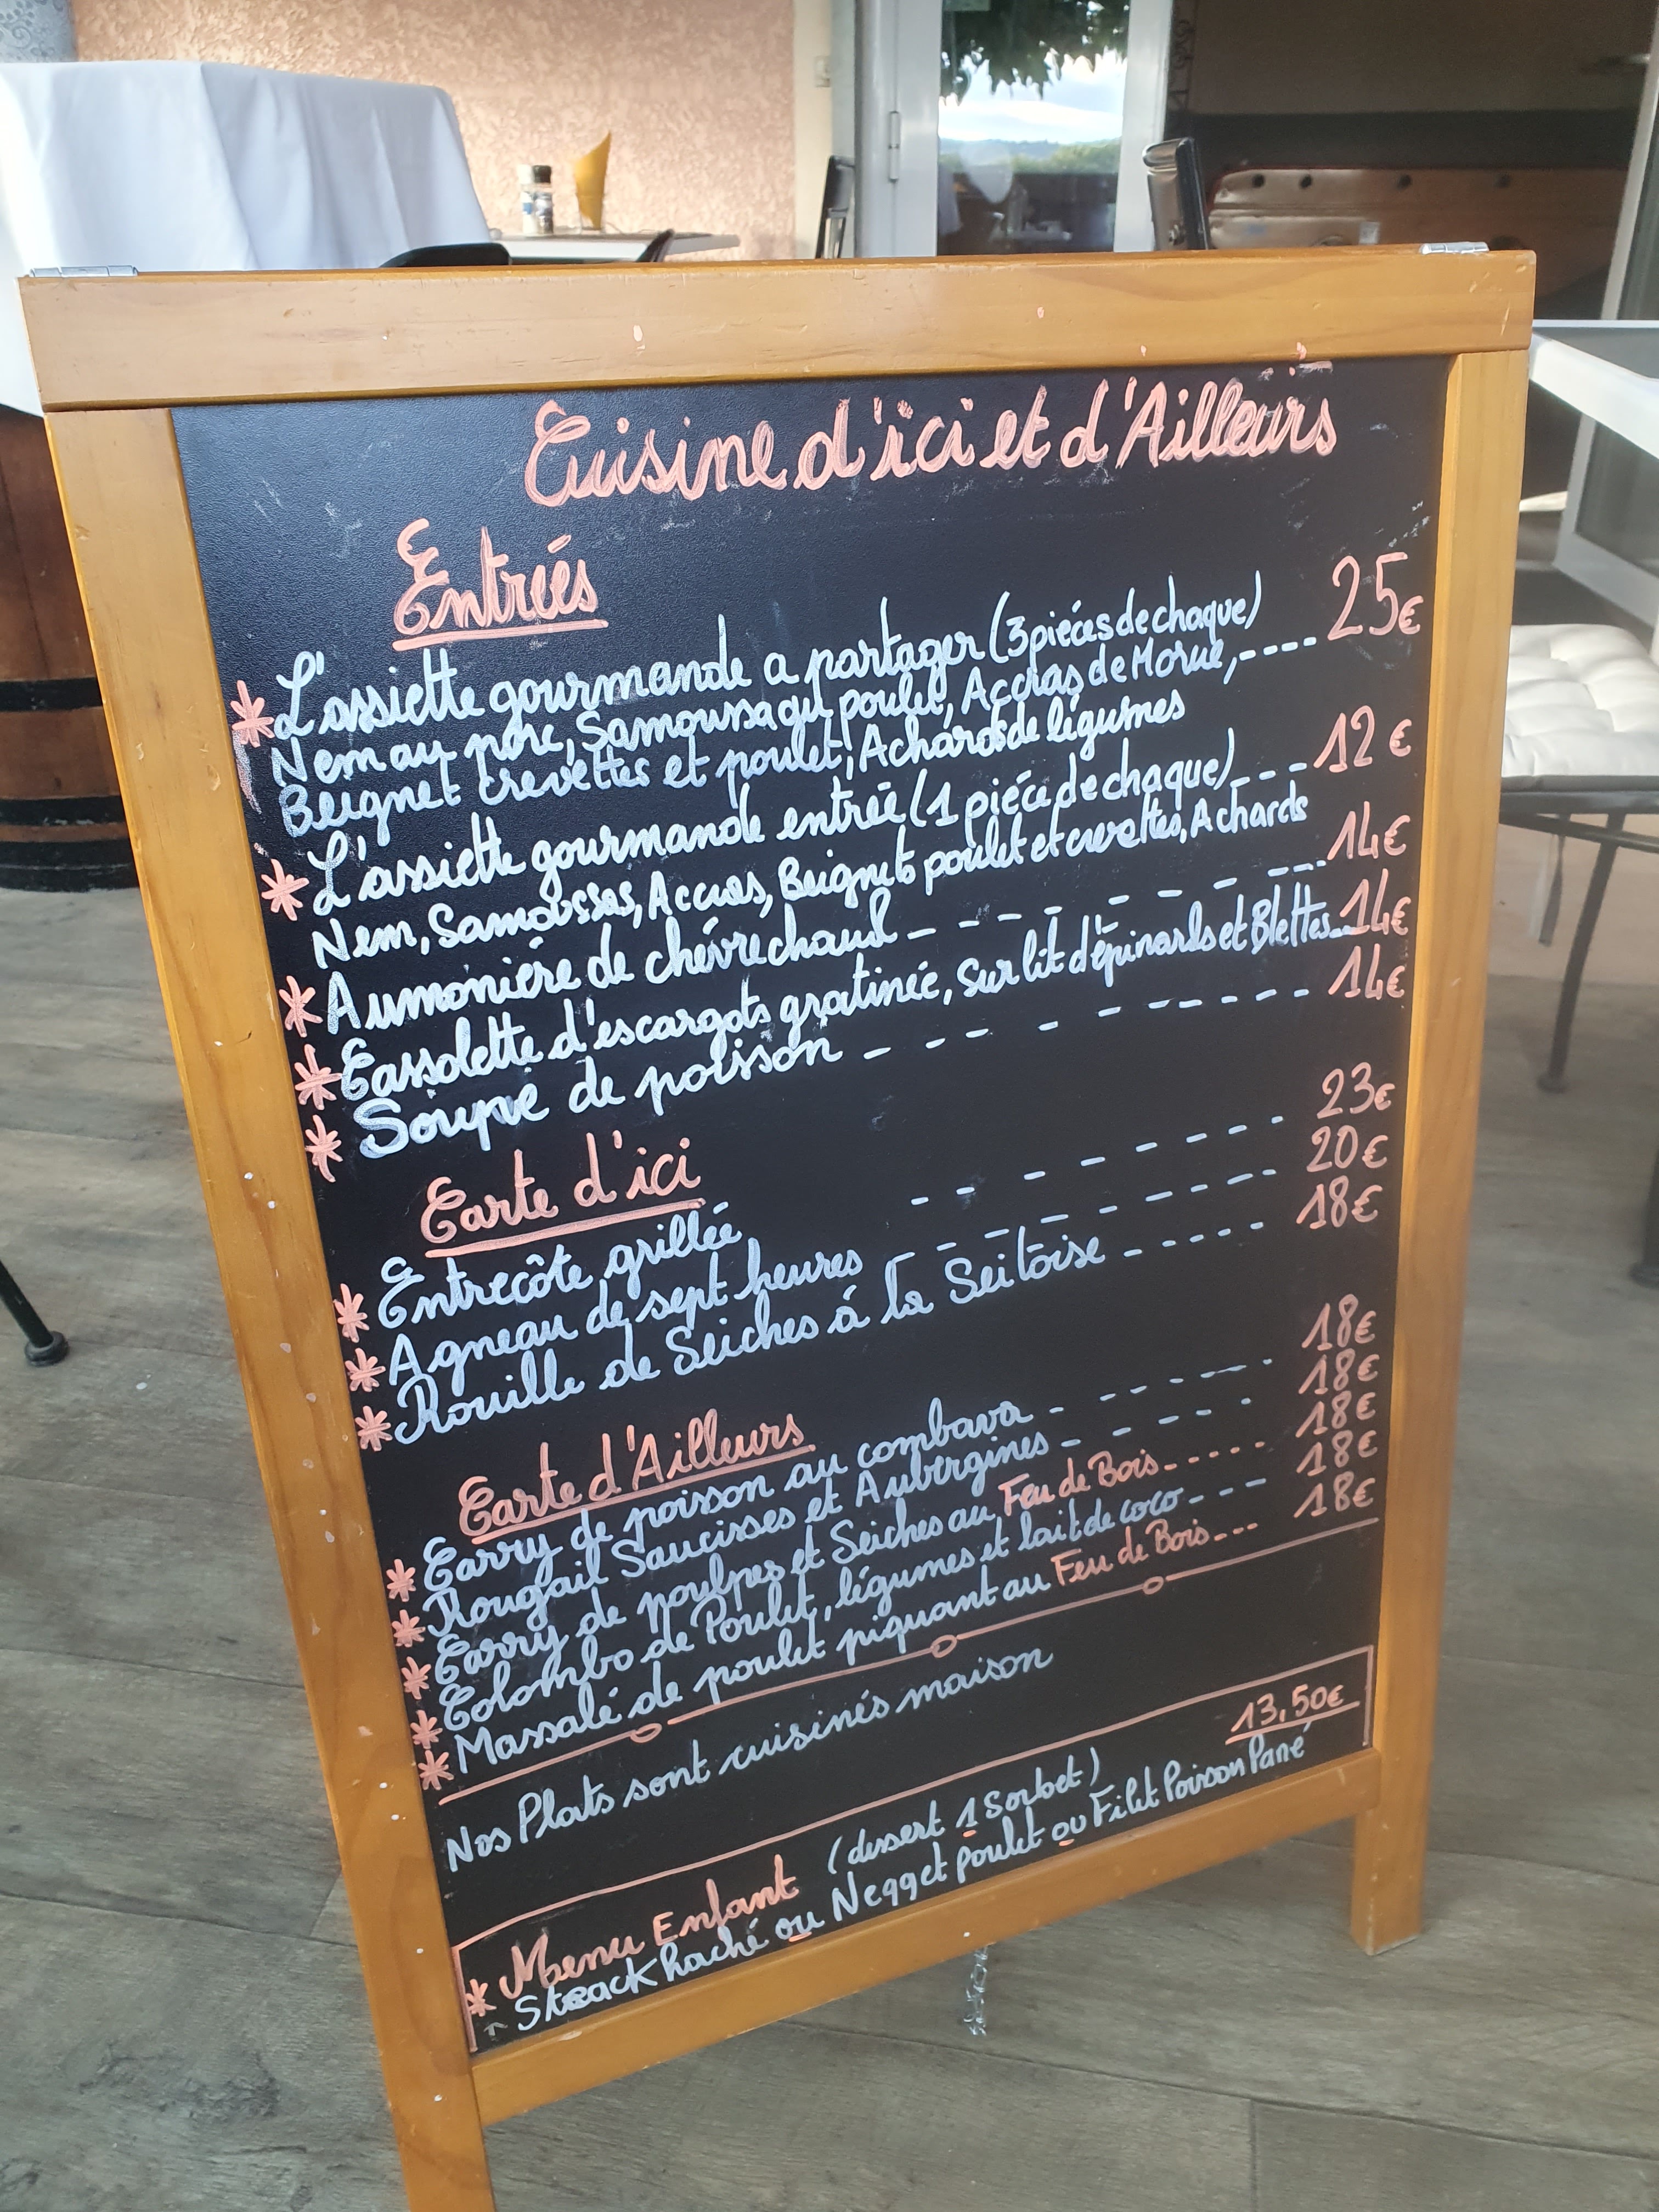 Cuisine d'ici et d'Ailleurs
Entrées
* L'assiette gourmande a partager (3 piéces de chaque)
Nem au porc, Samoussa au poulet, Accras de Morue, ---- 25€
Beignet crevettes et poulet, Achards de légumes
* L'assiette gourmande entrée (1 piéce de chaque) --- 12€
Nem, Samousses, Accras, Beignets poulet et crevettes, Achards
* Aumonière de chévre chaud - - - - - - - - - 14€
* Cassolette d'escargots gratinée, sur lit d'épinards et Blettes -- 14€
* Soupe de poisson - - - - - - - - - 14€
Carte d'ici
* Entrecôte grillée - - - - - - - 23€
* Agneau de sept heures - - - - - - - - - 20€
* Rouille de Seiches á la Seitoise - - - - - 18€
Carte d'Ailleurs
* Carry de poisson au combava - - - - - - - 18€
* Rougail Saucisses et Aubergines - - - - - - 18€
* Carry de poulpes et Seiches au Feu de Bois - - - - - 18€
* Colombo de Poulet, légumes et lait de coco - - - - 18€
* Massalé de poulet piquant au Feu de Bois - - - 18€
Nos Plats sont cuisinés maison
13,50€
* Menu Enfant (dessert 1 Sorbet)
Steack haché ou Negget poulet ou Filet Poisson Pané